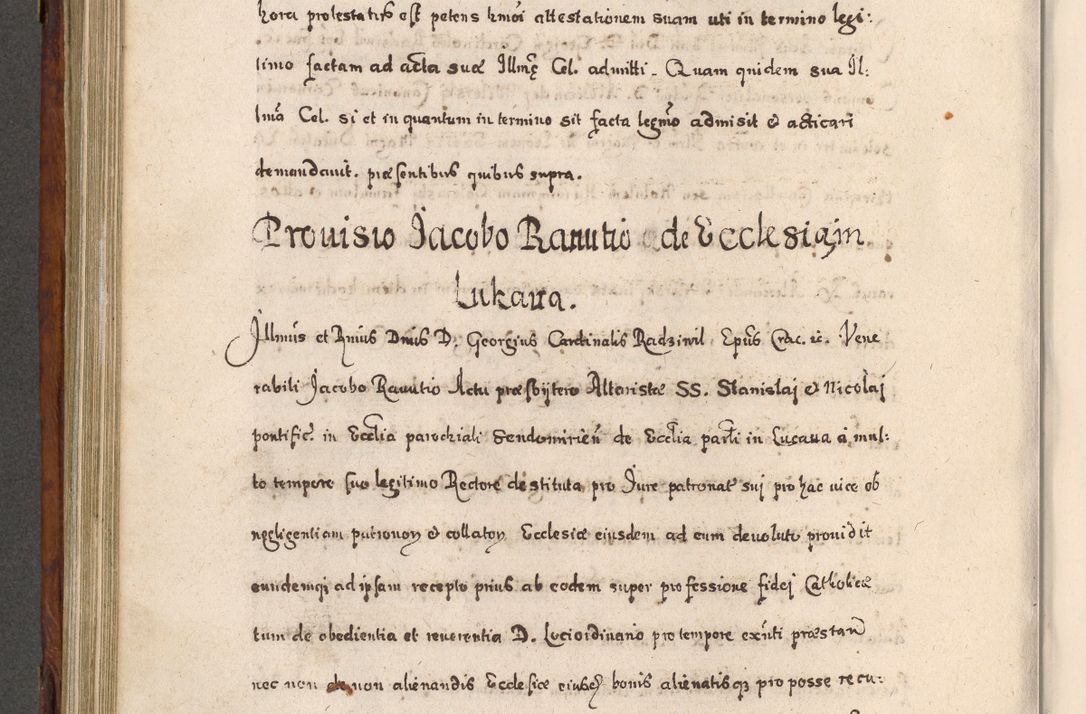 hora protestatus est petens hmõi attestationem suam uti in termino legi:
timo factam ad acta suæ Illmę Cel. admitti. Quam quidem sua Il:
lmã Cel. si et in quantum in termino sit facta legmõ admisit & acticari
demandavit. præsentibus quibus supra.
Prouisio Jacobo Ranutio de Ecclesia in
Lukaua.
Jllmus et Rmus Dnus D. Georgius Cardinalis Radziwil Epus Crac. etc. Vene
rabili Jacobo Ranutio Actu præsbijtero Altaristæ SS. Stanislaj & Nicolaj
pontific: in Ecclia parochiali Sendomirien de Ecclia parli in Lucaua à mul:
to tempore suo legitimo Rectore destituta pro Jure patronat sui pro hac uice ob
negligentiam patronor & collator Ecclesiæ eiusdem ad eum deuoluto prouidit
eundemq ad ipsam recepto prius ab eodem super professione fidej Catholicæ
tum de obedientia et reuerentia D. Lociordinario pro tempore exnti præstan
nec non de non alienandis Ecclesiæ eiusd bonis alienatisq pro posse recu-